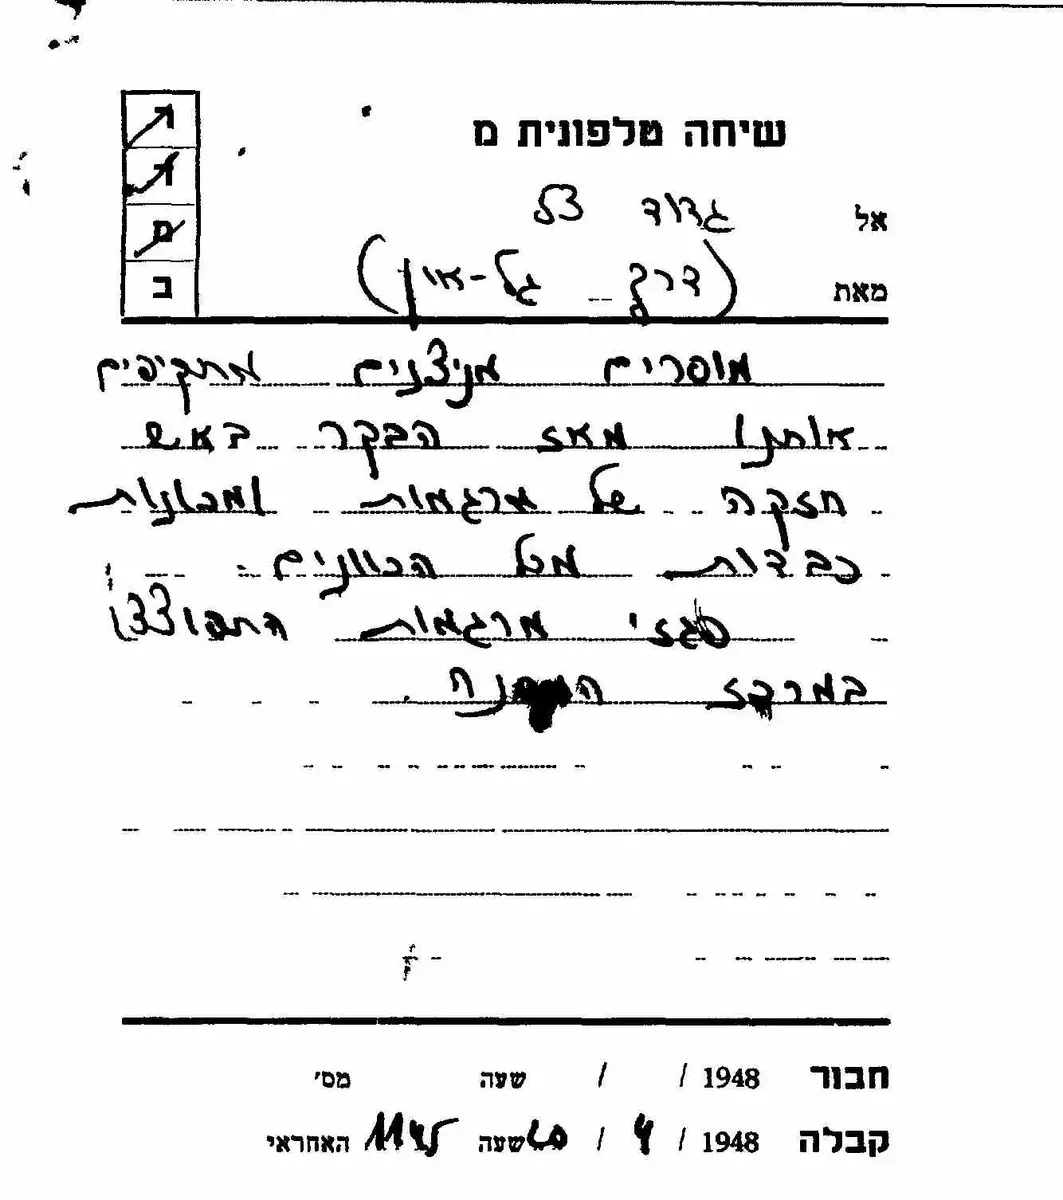 שיחה טלפונית מ
אל גדוד 53
מאת (דרך – גל-און)
מוסרים מניצנים מתקיפים
אותנו מאז הבקר באש
חזקה של מרגמות ומכונות
כבדות מכל הכוונים.
פגזי מרגמות התפוצצו
במרכז המחנה.
ד
ד
ם
ב
חבור 1948 / / שעה מס׳
קבלה 1948 / 4 / 20 שעה 1145 האחראי